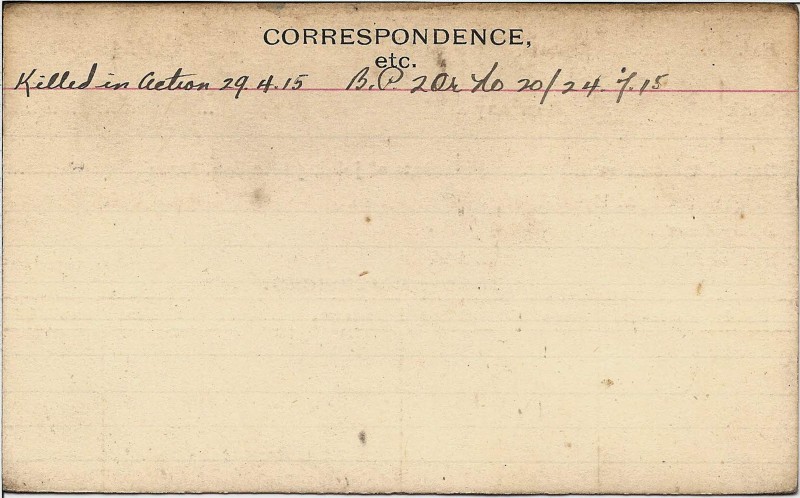 CORRESPONDENCE,
etc.
Killed in Action 29.4.15 B.P. 2 Or No 20/24.7.15